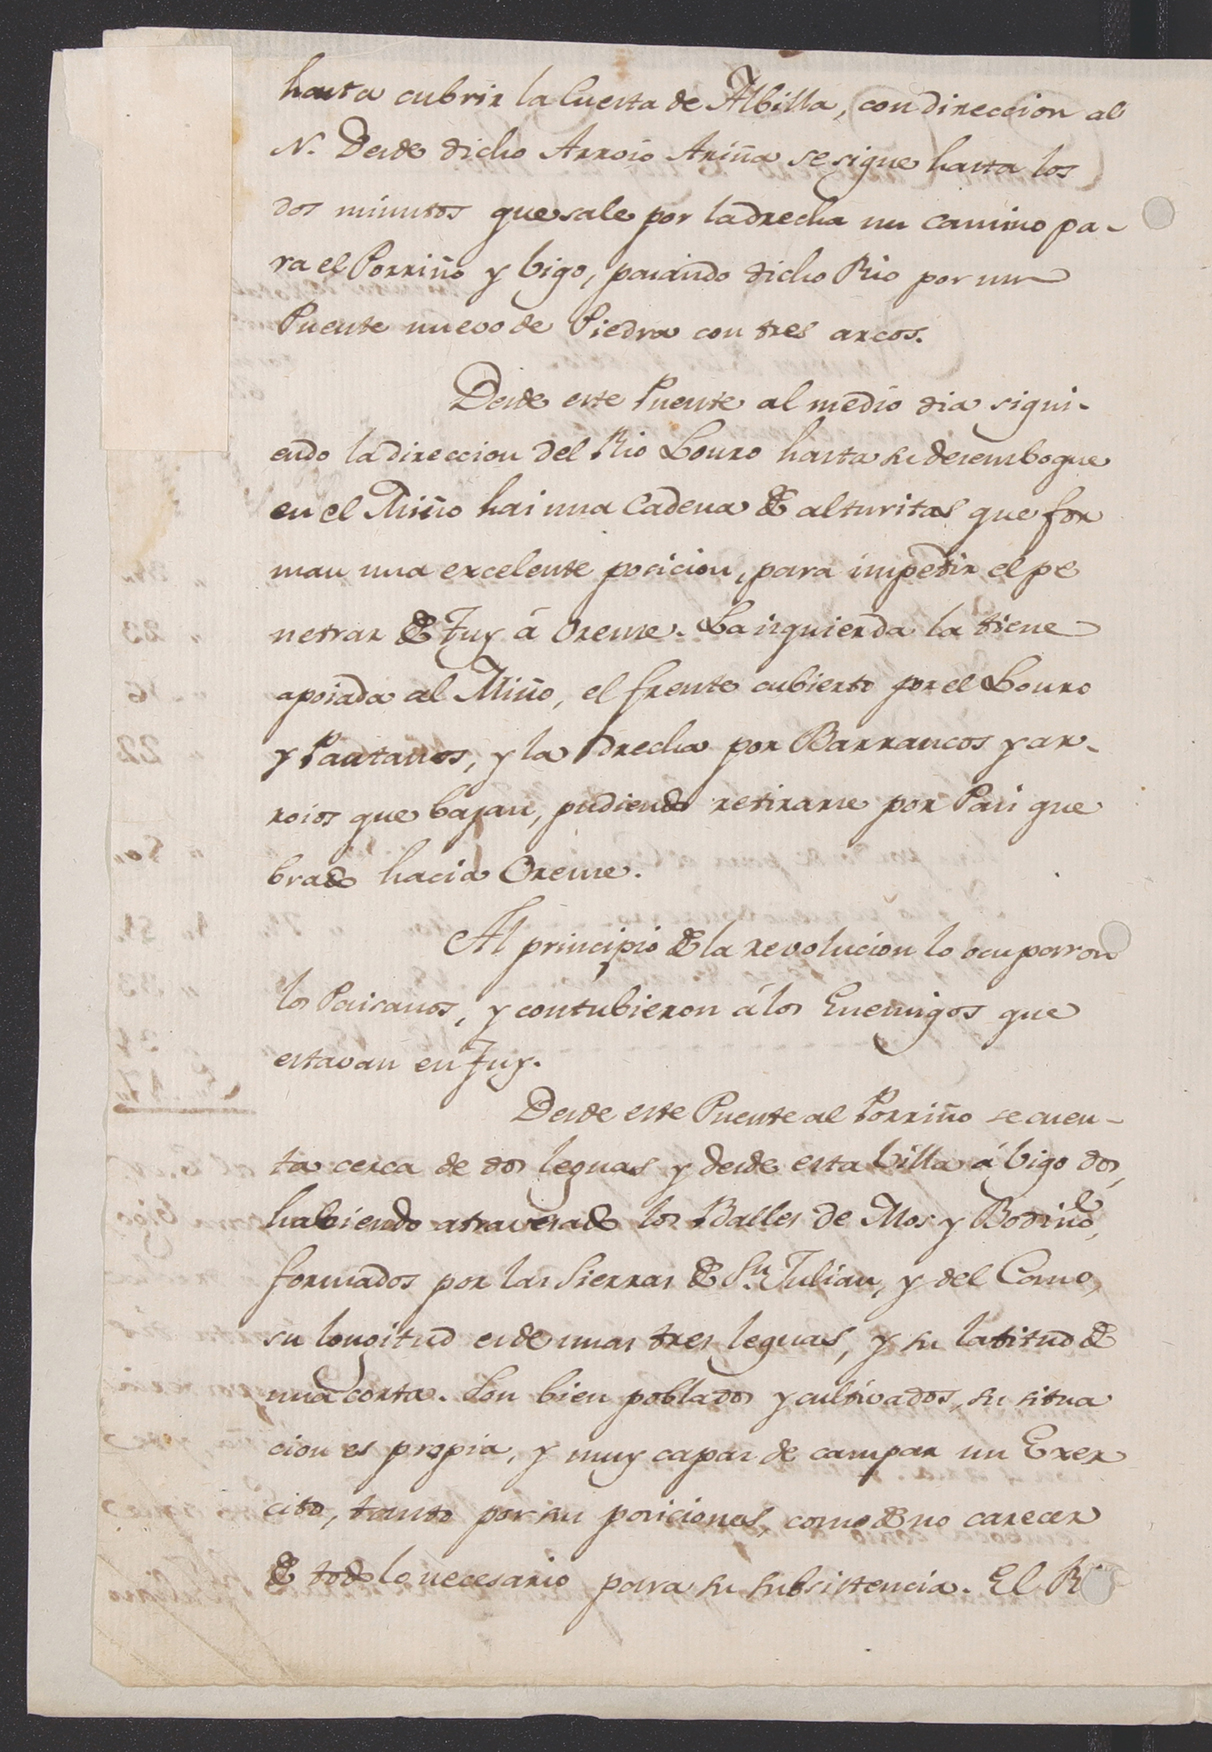 hasta cubrir la Cuesta de Albilla, con direccion al
N. Desde dicho Arroio Ariña se sigue hasta los
dos minutos que sale por la drecha un camino pa-
ra el Porriño y bigo, pasando dicho Rio por un
Puente nuevo de Piedra con tres arcos.
Desde este Puente al medio dia sigui-
endo la direccion del Rio Louro hasta su desemboque
en el Miño hai una Cadena de alturitas que for
man una excelente posicion, para impedir el pe
netrar de Tuy á Orense. La izquierda la tiene
apoiada al Miño, el frente cubierto por el Louro
y Pantanos, y la drecha por Barrancos y ar-
roios que bajan, pudiendo retirarse por Pais que
brado hacia Orense.
Al principio de la revolucion lo ocuparon
los Paisanos, y contubieron á los Enemigos que
estavan en Tuy.
Desde este Puente al Porriño se cuen-
ta cerca de dos leguas y desde esta billa á bigo dos,
habiendo atravesado los Balles de Mos y Bodiño,
formados por las Sierras de Sn. Julian, y del Corno,
su longitud es de unas tres leguas, y su latitud de
una corta. Son bien poblados y cultivados, su situa
cion es propia, y muy capas de campar un Exer
cito, tanto por su posiciones, como de no carecer
de todo lo necesario para su subsistencia. El